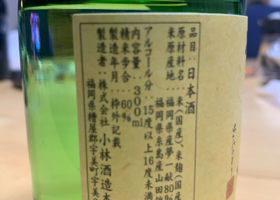 品目：日本酒
原材料名：米（国産）、米麹（国産
米原産地：福岡県産夢一献80％
福岡県糸島産山田
アルコール分：15度以上16度未満
内容量：300ml
精米歩合：60％
製造年月：枠外記載
製造者：株式会社 小林酒造本
福岡県糟屋郡宇美町宇美